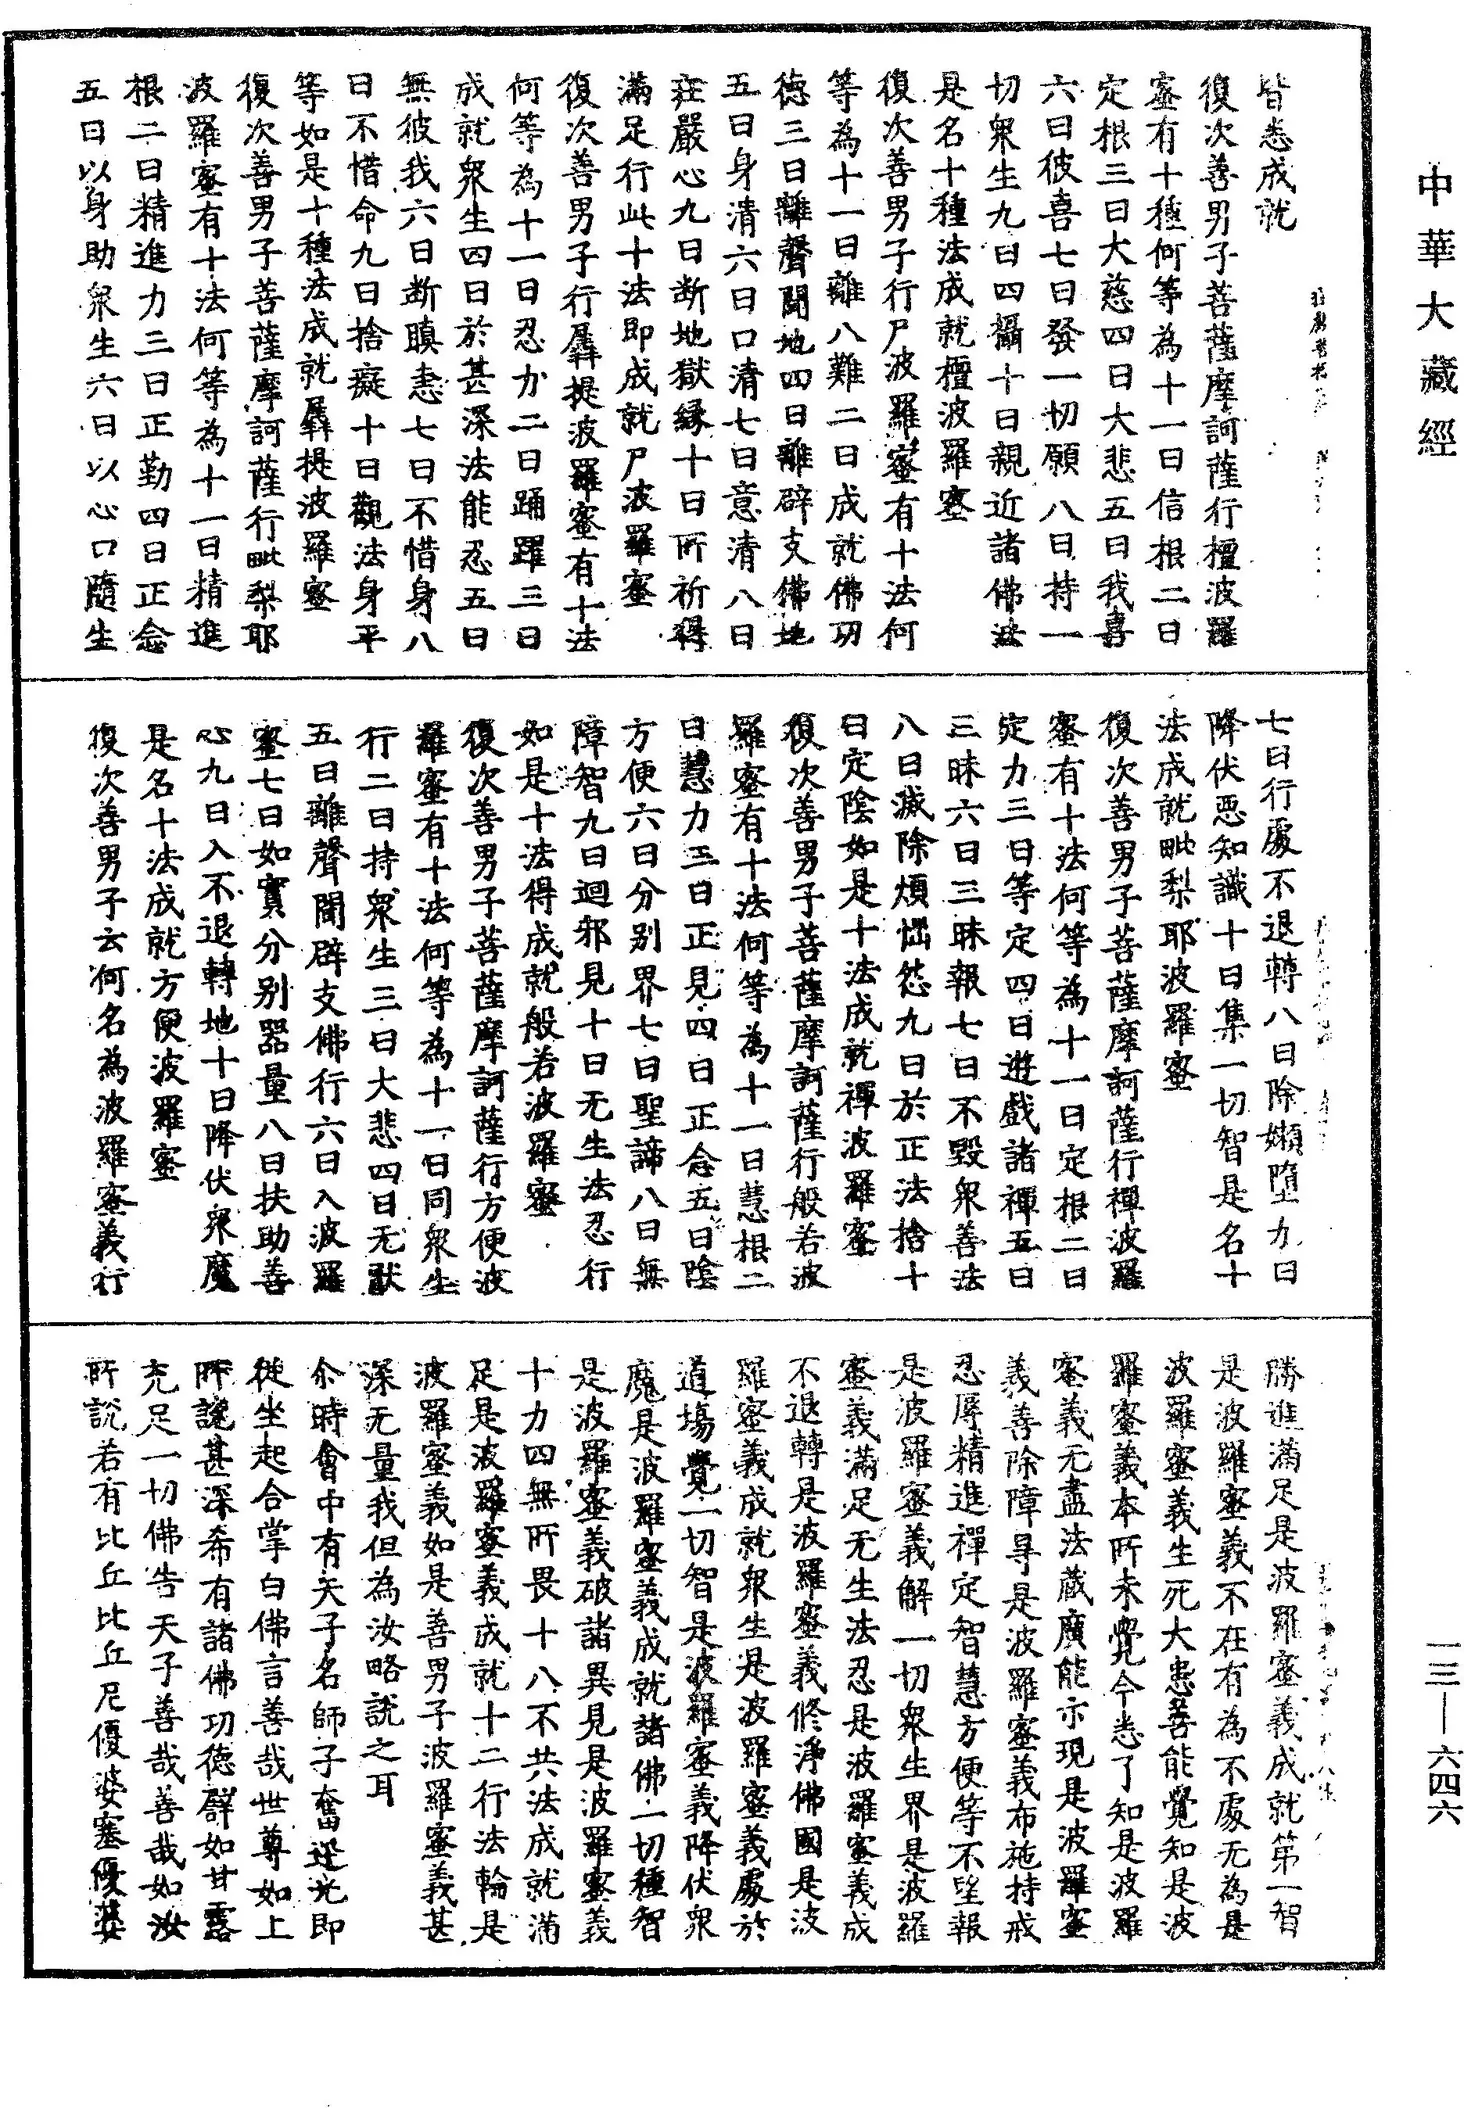 中華大藏經
皆悉成就
復次善男子菩薩摩訶薩行檀波羅
蜜有十種何等為十一曰信根二曰
定根三曰大慈四曰大悲五曰我喜
六曰彼喜七曰發一切願八曰持一
切眾生九曰四攝十曰親近諸佛法
是名十種法成就檀波羅蜜
復次善男子行尸波羅蜜有十法何
等為十一曰離八難二曰成就佛功
德三曰離聲聞地四曰離辟支佛地
五曰身清六曰口清七曰意清八曰
莊嚴心九曰断地獄緣十曰所祈得
滿足行此十法即成就尸波羅蜜
復次善男子行羼提波羅蜜有十法
何等為十一曰忍力二曰踊躍三曰
成就眾生四曰於甚深法能忍五曰
無彼我六曰断瞋恚七曰不惜身八
曰不惜命九曰捨癡十曰觀法身平
等如是十種法成就羼提波羅蜜
復次善男子菩薩摩訶薩行毗梨耶
波羅蜜有十法何等為十一曰精進
根二曰精進力三曰正勤四曰正念
五曰以身助眾生六曰以心口隨生
七曰行處不退轉八曰除嬾墮九曰
降伏惡知識十曰集一切智是名十
法成就毗梨耶波羅蜜
復次善男子菩薩摩訶薩行禪波羅
蜜有十法何等為十一曰定根二曰
定力三曰等定四曰遊戲諸禪五曰
三昧六曰三昧報七曰不毀眾善法
八曰滅除煩惱怨九曰於正法捨十
曰定陰如是十法成就禪波羅蜜
復次善男子菩薩摩訶薩行般若波
羅蜜有十法何等為十一曰慧根二
曰慧力三曰正見四曰正念五曰陰
方便六曰分别界七曰聖諦八曰無
障智九曰迴邪見十曰无生法忍行
如是十法得成就般若波羅蜜
復次善男子菩薩摩訶薩行方便波
羅蜜有十法何等為十一曰同眾生
行二曰持眾生三曰大悲四曰无猒
五曰離聲聞辟支佛行六曰入波羅
蜜七曰如實分别器量八曰扶助善
心九曰入不退轉地十曰降伏眾魔
是名十法成就方便波羅蜜
復次善男子云何名為波羅蜜義行
勝進滿足是波羅蜜義成就第一智
是波羅蜜義不在有為不處无為是
波羅蜜義生死大患善能覺知是波
羅蜜義本所未覺今悉了知是波羅
蜜義无盡法藏廣能示現是波羅蜜
義善除障㝵是波羅蜜義布施持戒
忍辱精進禪定智慧方便等不望報
是波羅蜜義解一切眾生界是波羅
蜜義滿足无生法忍是波羅蜜義成
不退轉是波羅蜜義修淨佛國是波
羅蜜義成就眾生是波羅蜜義處於
道場覺一切智是波羅蜜義降伏眾
魔是波羅蜜義成就諸佛一切種智
是波羅蜜義破諸異見是波羅蜜義
十力四無所畏十八不共法成就滿
足是波羅蜜義成就十二行法輪是
波羅蜜義如是善男子波羅蜜義甚
深无量我但為汝略說之耳
尒時會中有天子名師子奮迅光即
從坐起合掌白佛言善哉世尊如上
所說甚深希有諸佛功德譬如甘露
充足一切佛告天子善哉善哉如汝
所說若有比丘比丘尼優婆塞優婆
一三—六四六